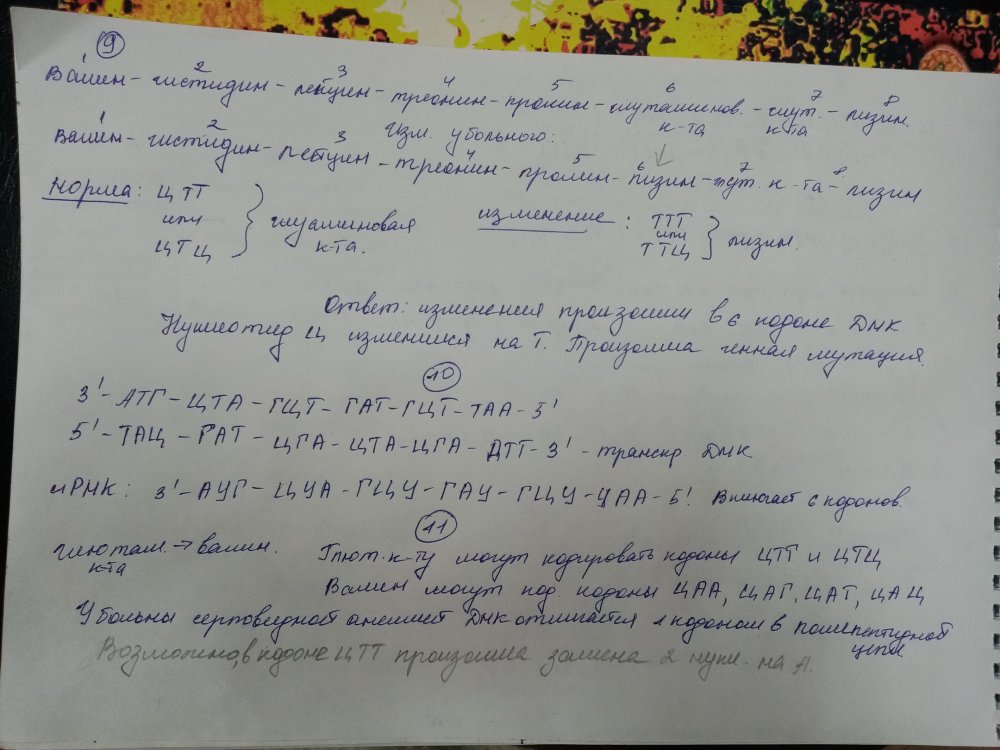 9
1 2 3 4 5 6 7 8
Валин - гистидин - лейцин - треонин - пролин - глутаминов. к-та - глут. к-та - лизин.
Изм. у больного:
1 2 3 4 5 6 7 8
Валин - гистидин - лейцин - треонин - пролин - лизин - глут. к-та - лизин
Норма: ЦТТ или ЦТЦ } глуаминовая к-та.
изменение: ТТТ или ТТЦ } лизин.
Ответ: изменения произошли в 6 кодоне ДНК
Нуклеотид Ц изменился на Т. Произошла генная мутация.
10
3' - АТГ - ЦТА - ГЦТ - ГАТ - ГЦТ - ТАА - 5'
5' - ТАЦ - ГАТ - ЦГА - ЦТА - ЦГА - АТТ - 3' - транскр ДНК
иРНК: 3' - АУГ - ЦУА - ГЦУ - ГАУ - ГЦУ - УАА - 5' Включает 6 кодонов.
11
глютам. к-та → валин. Глют. к-ту могут кодировать кодоны ЦТТ и ЦТЦ
Валин могут код. кодоны ЦАА, ЦАГ, ЦАТ, ЦАЦ
У больны серповидной анемией ДНК отличается 1 кодоном в полипептидной цепи
Возможно, в кодоне ЦТТ произошла замена 2 нукл. на А.